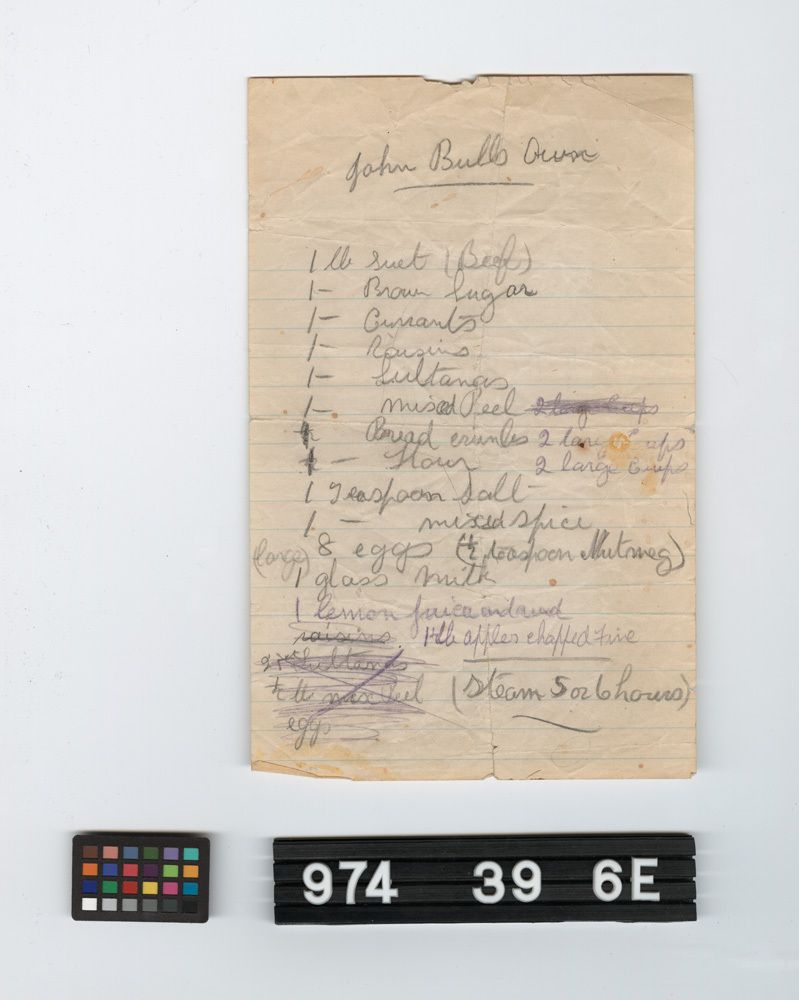 John Bulls Own
1 lb Suet (Beef)
1 - Brown Sugar
1 - Currants
1 - Raisins
1 - Sultanas
1 - mixed Peel 2 large cups
Bread crumbs 2 large cups
- Flour 2 large cups
1 Teaspoon Salt
1 - mixed Spice
(large) 8 eggs (½ teaspoon Nutmeg)
1 glass milk
1 lemon juice and rind
raisins 1 lb apples chopped Fine
Sultanas
½ lb mix Peel (Steam 5 or 6 hours)
eggs
974 39 6E